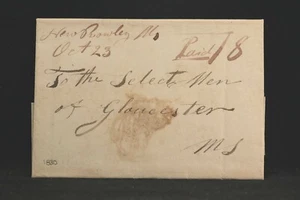 New Rowley Ms
Oct 23
Paid 18
To the Select Men
of Gloucester
Ms
1830